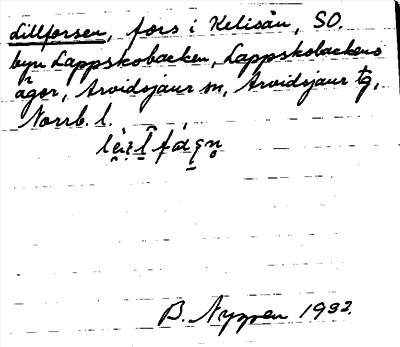 Lillforsen, fors i Kelisån, SO.
byn Lappskobacken, Lappskobackens
ägor, Arvidsjaur sn, Arvidsjaur tg,
Norrb. l.
B. Nygren 1932.